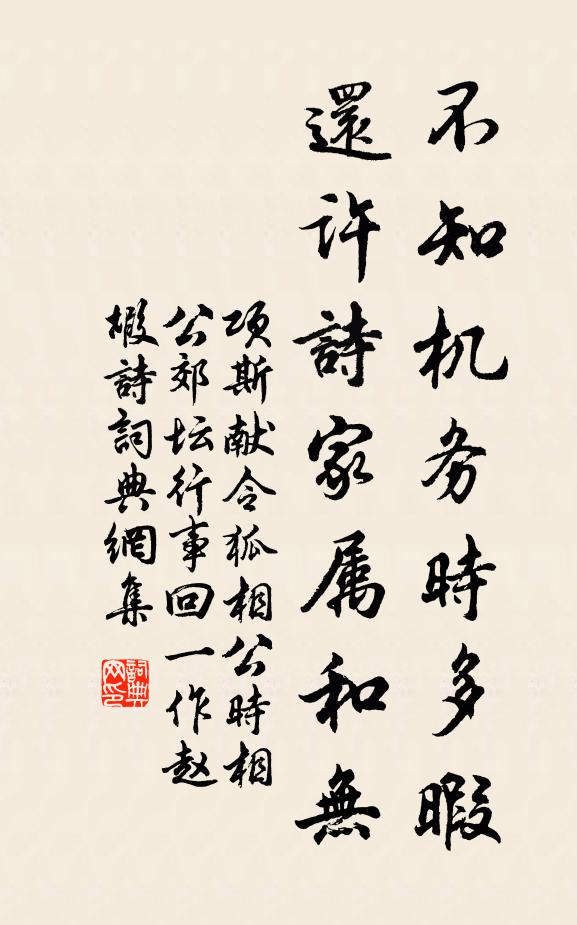 不知机务時多暇
還許詩家属和無
项斯献令狐相公時相
公郊坛行事回一作赵
嘏詩詞典網集
詞典网印